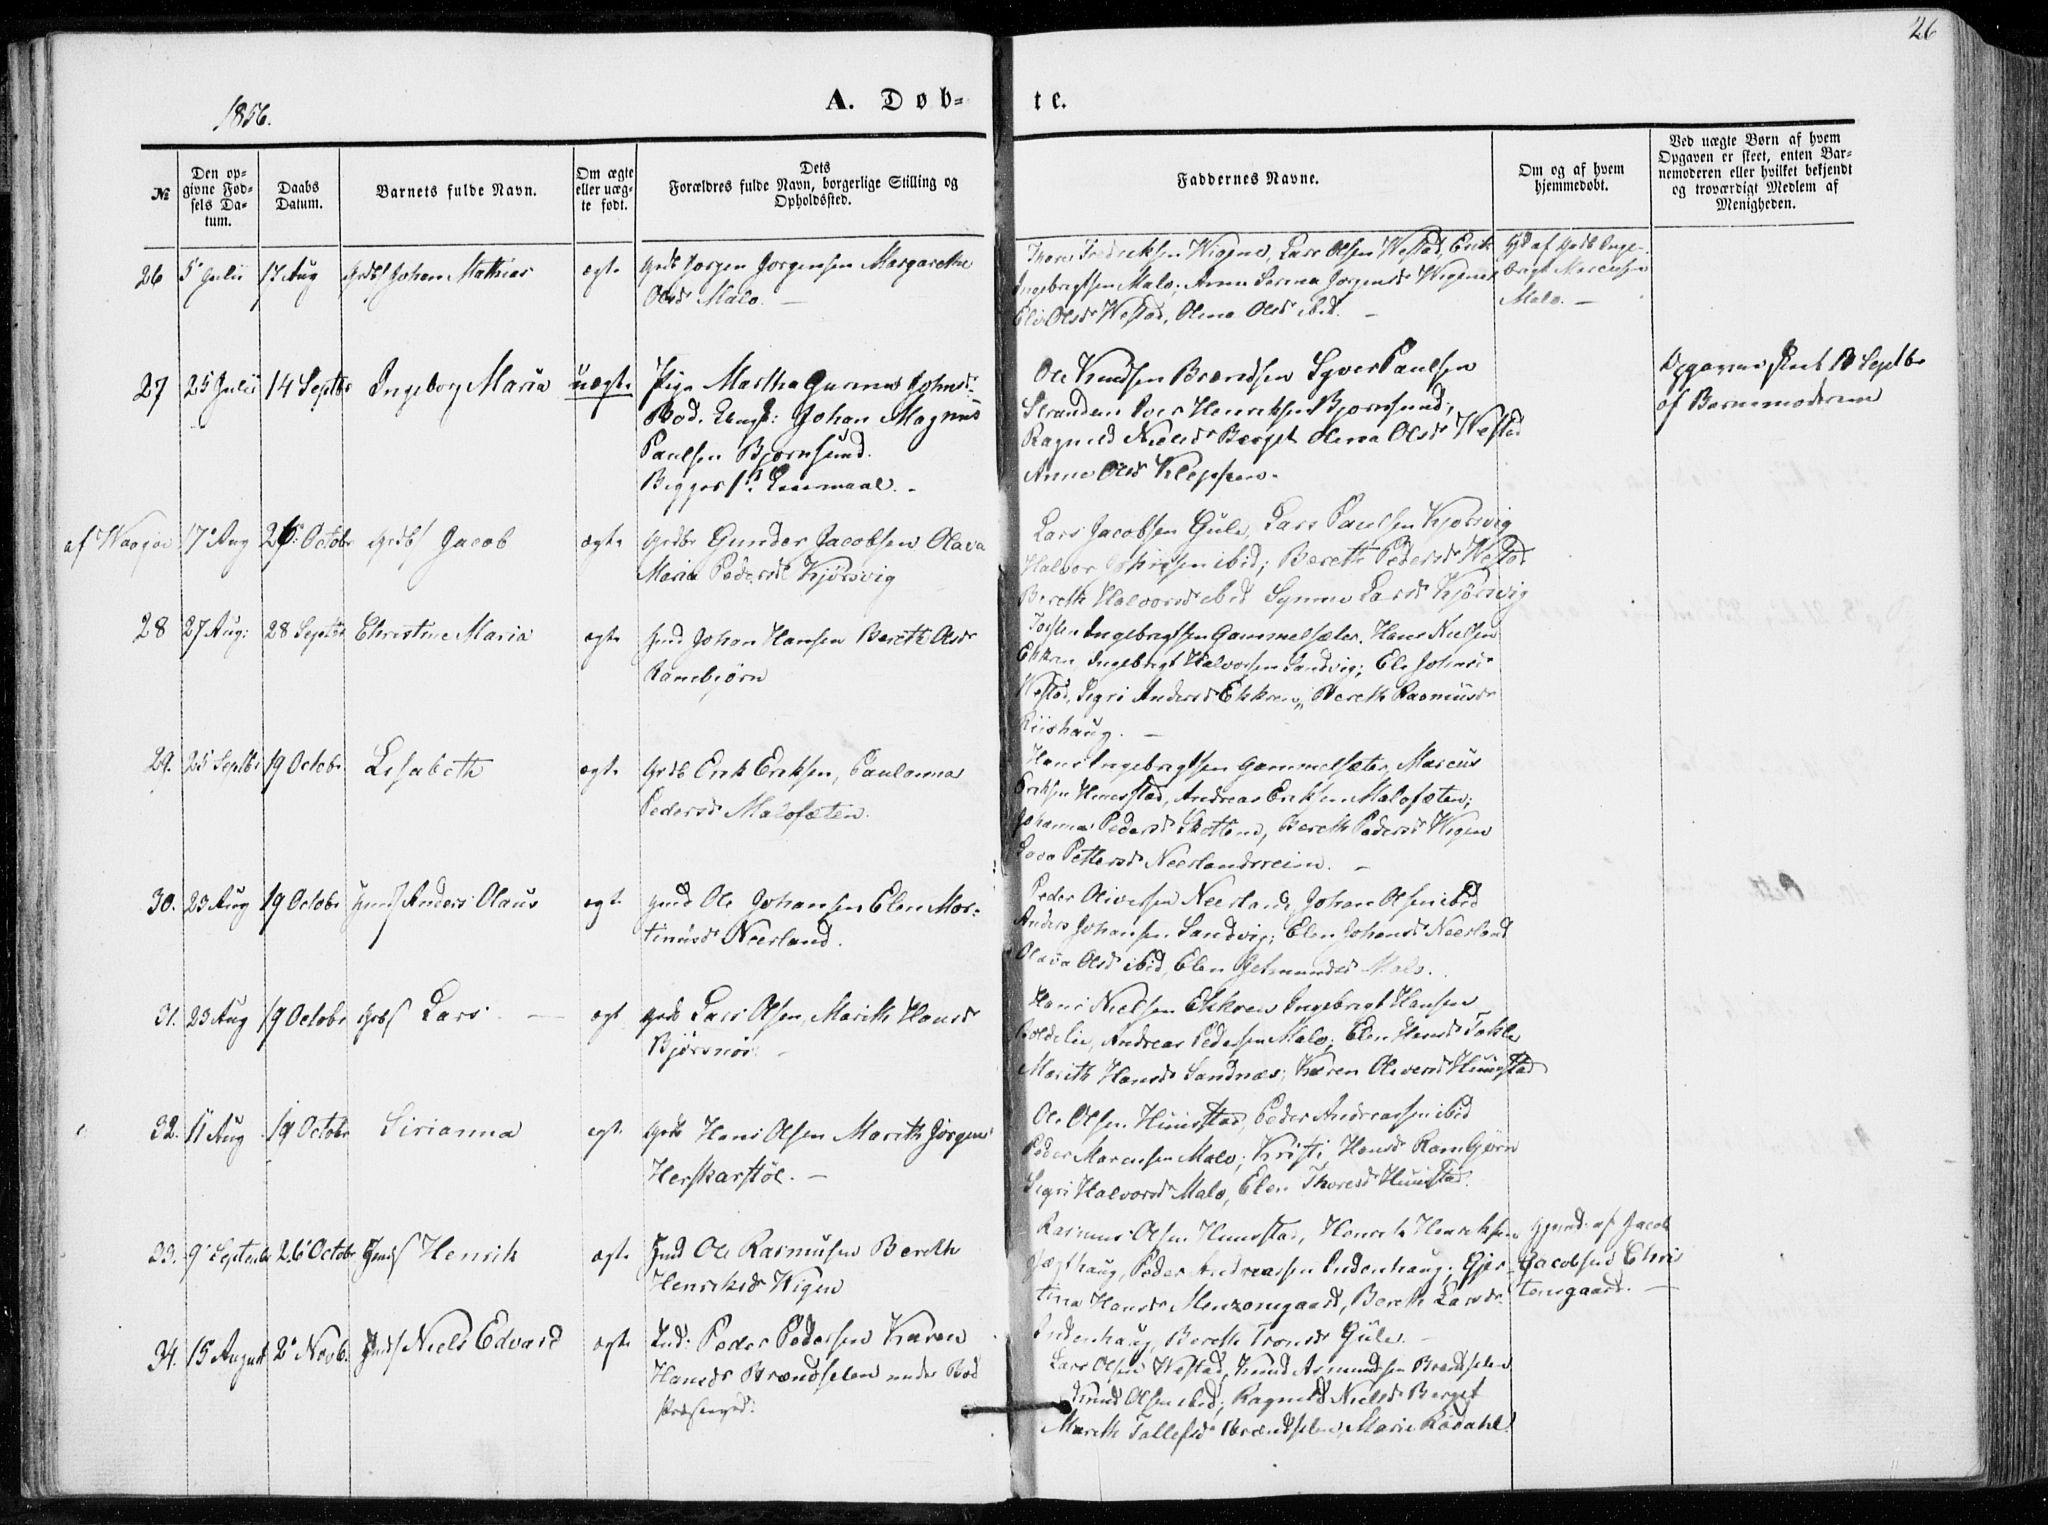 26
1856.
A. Døb-
te.
№
Den opgivne Fødsels Datum.
Daabs Datum.
Barnets fulde Navn.
Om ægte eller uægte født.
Dets Forældres fulde Navn, borgerlige Stilling og Opholdssted.
Faddernes Navne.
Om og af hvem hjemmedøbt.
Ved uægte Børn af hvem Opgaven er skeet, enten Barnemoderen eller hvilket bekjendt og troværdigt Medlem af Menigheden.
26 5 Julii 17 Aug Johan Mathias ægte Jørgen Jørgensen Margarethe
Olsd Malo. —
Thore Fredriksen Wigene, Lars Olsen Westad, Erik
Ingebrigtsen Malo, Anne Serina Jørgensd Wigene
Eli Olsd Westad, Olina Olsd ibid. —
Gd af Gdb Inge-
brigt Marcussen
Malo. —
27 25 Julii 14 Septbr Ingeborg Maria uægte Pige Martha Gurine Johnsd
Bod. Ungk: Johan Magnus
Paulsen Bjørnsund.
Begges 1ste Leiermaal. -
Ole Knudsen Brændsen Syver Paulsen
Stranden Iver Henriksen Bjørnsund;
Ragnild Nielsd Berget Olina Olsd Westad
Anne Olsd Kleppen.
Opgaven skeet 13 Septbr
af Barnemoderen
af Waagøe 17 Aug 26 Octobr Gdb Jacob ægte Gdbr Gunder Jacobsen Olava
Maria Pedersd Kjørsvig
Lars Jacobsen Gule, Lars Paulsen Kjørsvig
Halvor ibid; Bereth Pedersd Westad
Bereth Halvorsd ibid Synne Larsd Kjørsvig
28 27 Aug: 28 Septbr Christine Maria ægte Johan Hansen Bereth Olsd
Rambjørn
Torsten Ingebrigtsen Gammelsæter. Hans Nielsen
Ekkren Ingebrigt Halvorsen Sandvig; Eli Johnsd
Westad, Segri Andersd Ekkren, Bereth Rasmusd
Riishaug. —
29. 25 Septbr 19 Octobr Lisabeth ægte Gdb Erik Eriksen, Paulanna
Pedersd Malosæten.
Hans Ingebrigtsen Gammelsæter, Marcus
Eriksen Hunstad, Andreas Eriksen Malosæten;
Johanna Pedersd Skotten, Bereth Pedersd Wigen
Petersd Neerlandsreim. —
30. 23 Aug 19 Octobr Anders Olaus ægte Ole Johansen Elen Mor-
tinusd Neerland.
Peder Oliversen Neerland, Johan Olsen ibid
Anders Johansen Sandvig; Elen Johansd Neerland
Olava Olsd ibid, Elen Malo.
31. 23 Aug 19 Octobr Lars. — ægt Gdb Lars Olsen, Marith Hansd
Bjørsnøs. —
Hans Nielsen Ekkren Ingebrigt Hansen
Andreas Pedersen Malo; Elen Hansd Takle
Marith Hansd Sandnæs; Karen Oliversd Hunstad
32. 11 Aug 19 Octobr Sirianna ægte Gdb Hans Olsen Marith Jørgensd
Herskarstøl. —
Ole Olsen Hunstad, Peder Andreassen ibid
Peder Marcussen Malo; Kristi Hansd Rambjørn
Segri Halvorsd Malo, Elen Thoresd Hunstad.
33. 9 Septembr 26 Octobr Henrik ægte Ole Rasmusen Bereth
Henriksd Wigen
Rasmus Olsen Hunstad, Henrik Henriksen
Jægthaug, Peder Andreassen Indenhaug; Gjer-
tina Hansd Monzonsgaard, Bereth Larsd
Indenhaug, Bereth Tronsd Gule. —
af Jacob
Jacobsen Chris
tensgaard. —
34. 15 August 2 Novb. Niels Edvard ægte Ind: Peder Pedersen Karen
Hansd Brændselen under Bod
Præstegd:
Lars Olsen Westad, Knud Asmundsen Brændselen
Knud Olsen ibid; Ragnild Nielsd Berget
Marith Tollefsd Brændselen, Marie Rødahl